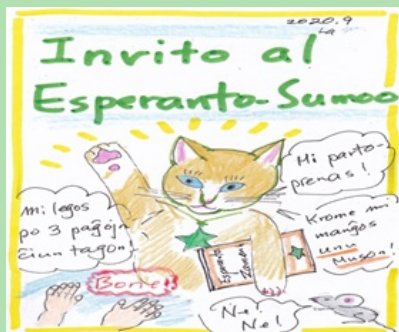 2020.9
La
Invito al
Esperanto-Sumoo
Mi parto-
prenas!
mi legos
po 3 paĝojn
ĉiun tagon!
Krome mi
manĝos
unu
Muson!
Esperanto
Bone!
Ne!
Ne!